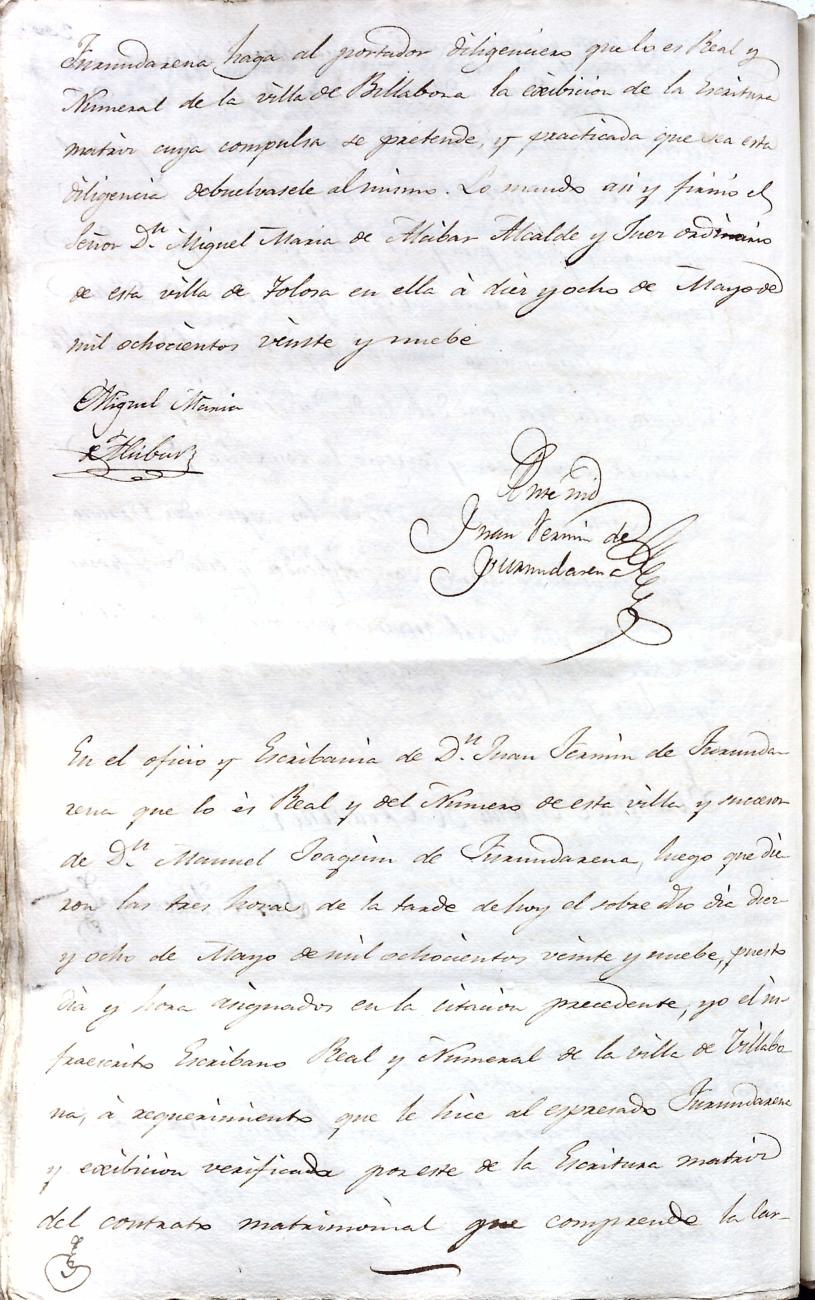 Furundarena haga al portador diligenciero que lo es Real y
Numeral de la villa de Billabona la exibicion de la Escritura
matriz cuya compulsa se pretende, y practicada que sea esta
diligencia debuelvasele al mismo. Lo mando asi y firmó el
Señor Dn. Miguel Maria de Alcibar Alcalde y Juez ordinario
de esta villa de Tolosa en ella à diez y ocho de Mayo de
mil ochocientos veinte y nuebe
Miguel Maria
de Alcibar
Ante mi
Juan Fermin de
Furundarena
En el oficio y Escribania de Dn. Juan Fermin de Furunda-
rena que lo es Real y del Numero de esta villa y sucesor
de Dn. Manuel Joaquin de Furundarena, luego que die-
ron las tres horas de la tarde de hoy el sobre dho dia diez
y ocho de Mayo de mil ochocientos veinte y nuebe, puesto
dia y hora asignados en la citacion precedente, yo el in-
fraescrito Escribano Real y Numeral de la villa de Villabo-
na, à requerimiento que le hice al espresado Furundarena
y exibicion verificada por este de la Escritura matriz
del contrato matrimonial que comprende la lar-